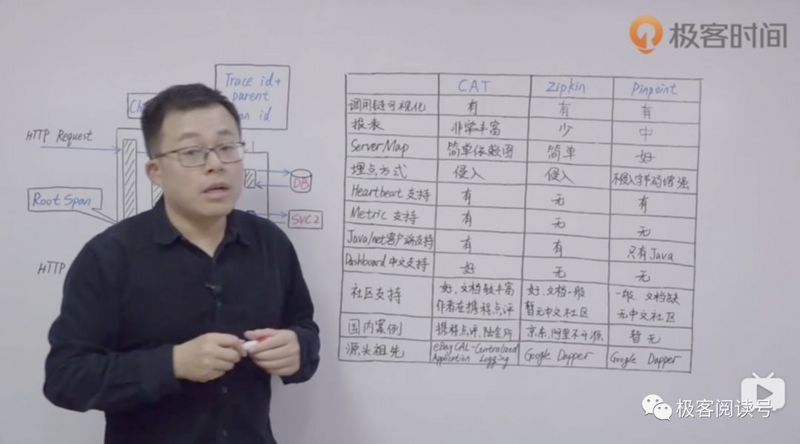 极客时间
Trace id+
parent
an id
Ch
HTTP Request
Root Span
DB
SVC2
HTTP
CAT Zipkin Pinpoint
调用链可视化 有 有 有
报表 非常丰富 少 中
ServerMap 简单依赖图 简单 好
埋点方式 侵入 侵入 不侵入字节码增强
Heartbeat支持 有 无 有
Metric支持 有 无 无
Java/net客户端支持 有 有 只有Java
Dashboard中文支持 好 无 无
社区支持 好,文档较丰富 好,文档一般 一般,文档缺
作者在携程点评 暂无中文社区 无中文社区
国内案例 携程点评,陆金所 京东,阿里不开源 暂无
源头祖先 eBay CAL-Centralized Google Dapper Google Dapper
Application Logging
极客阅读号